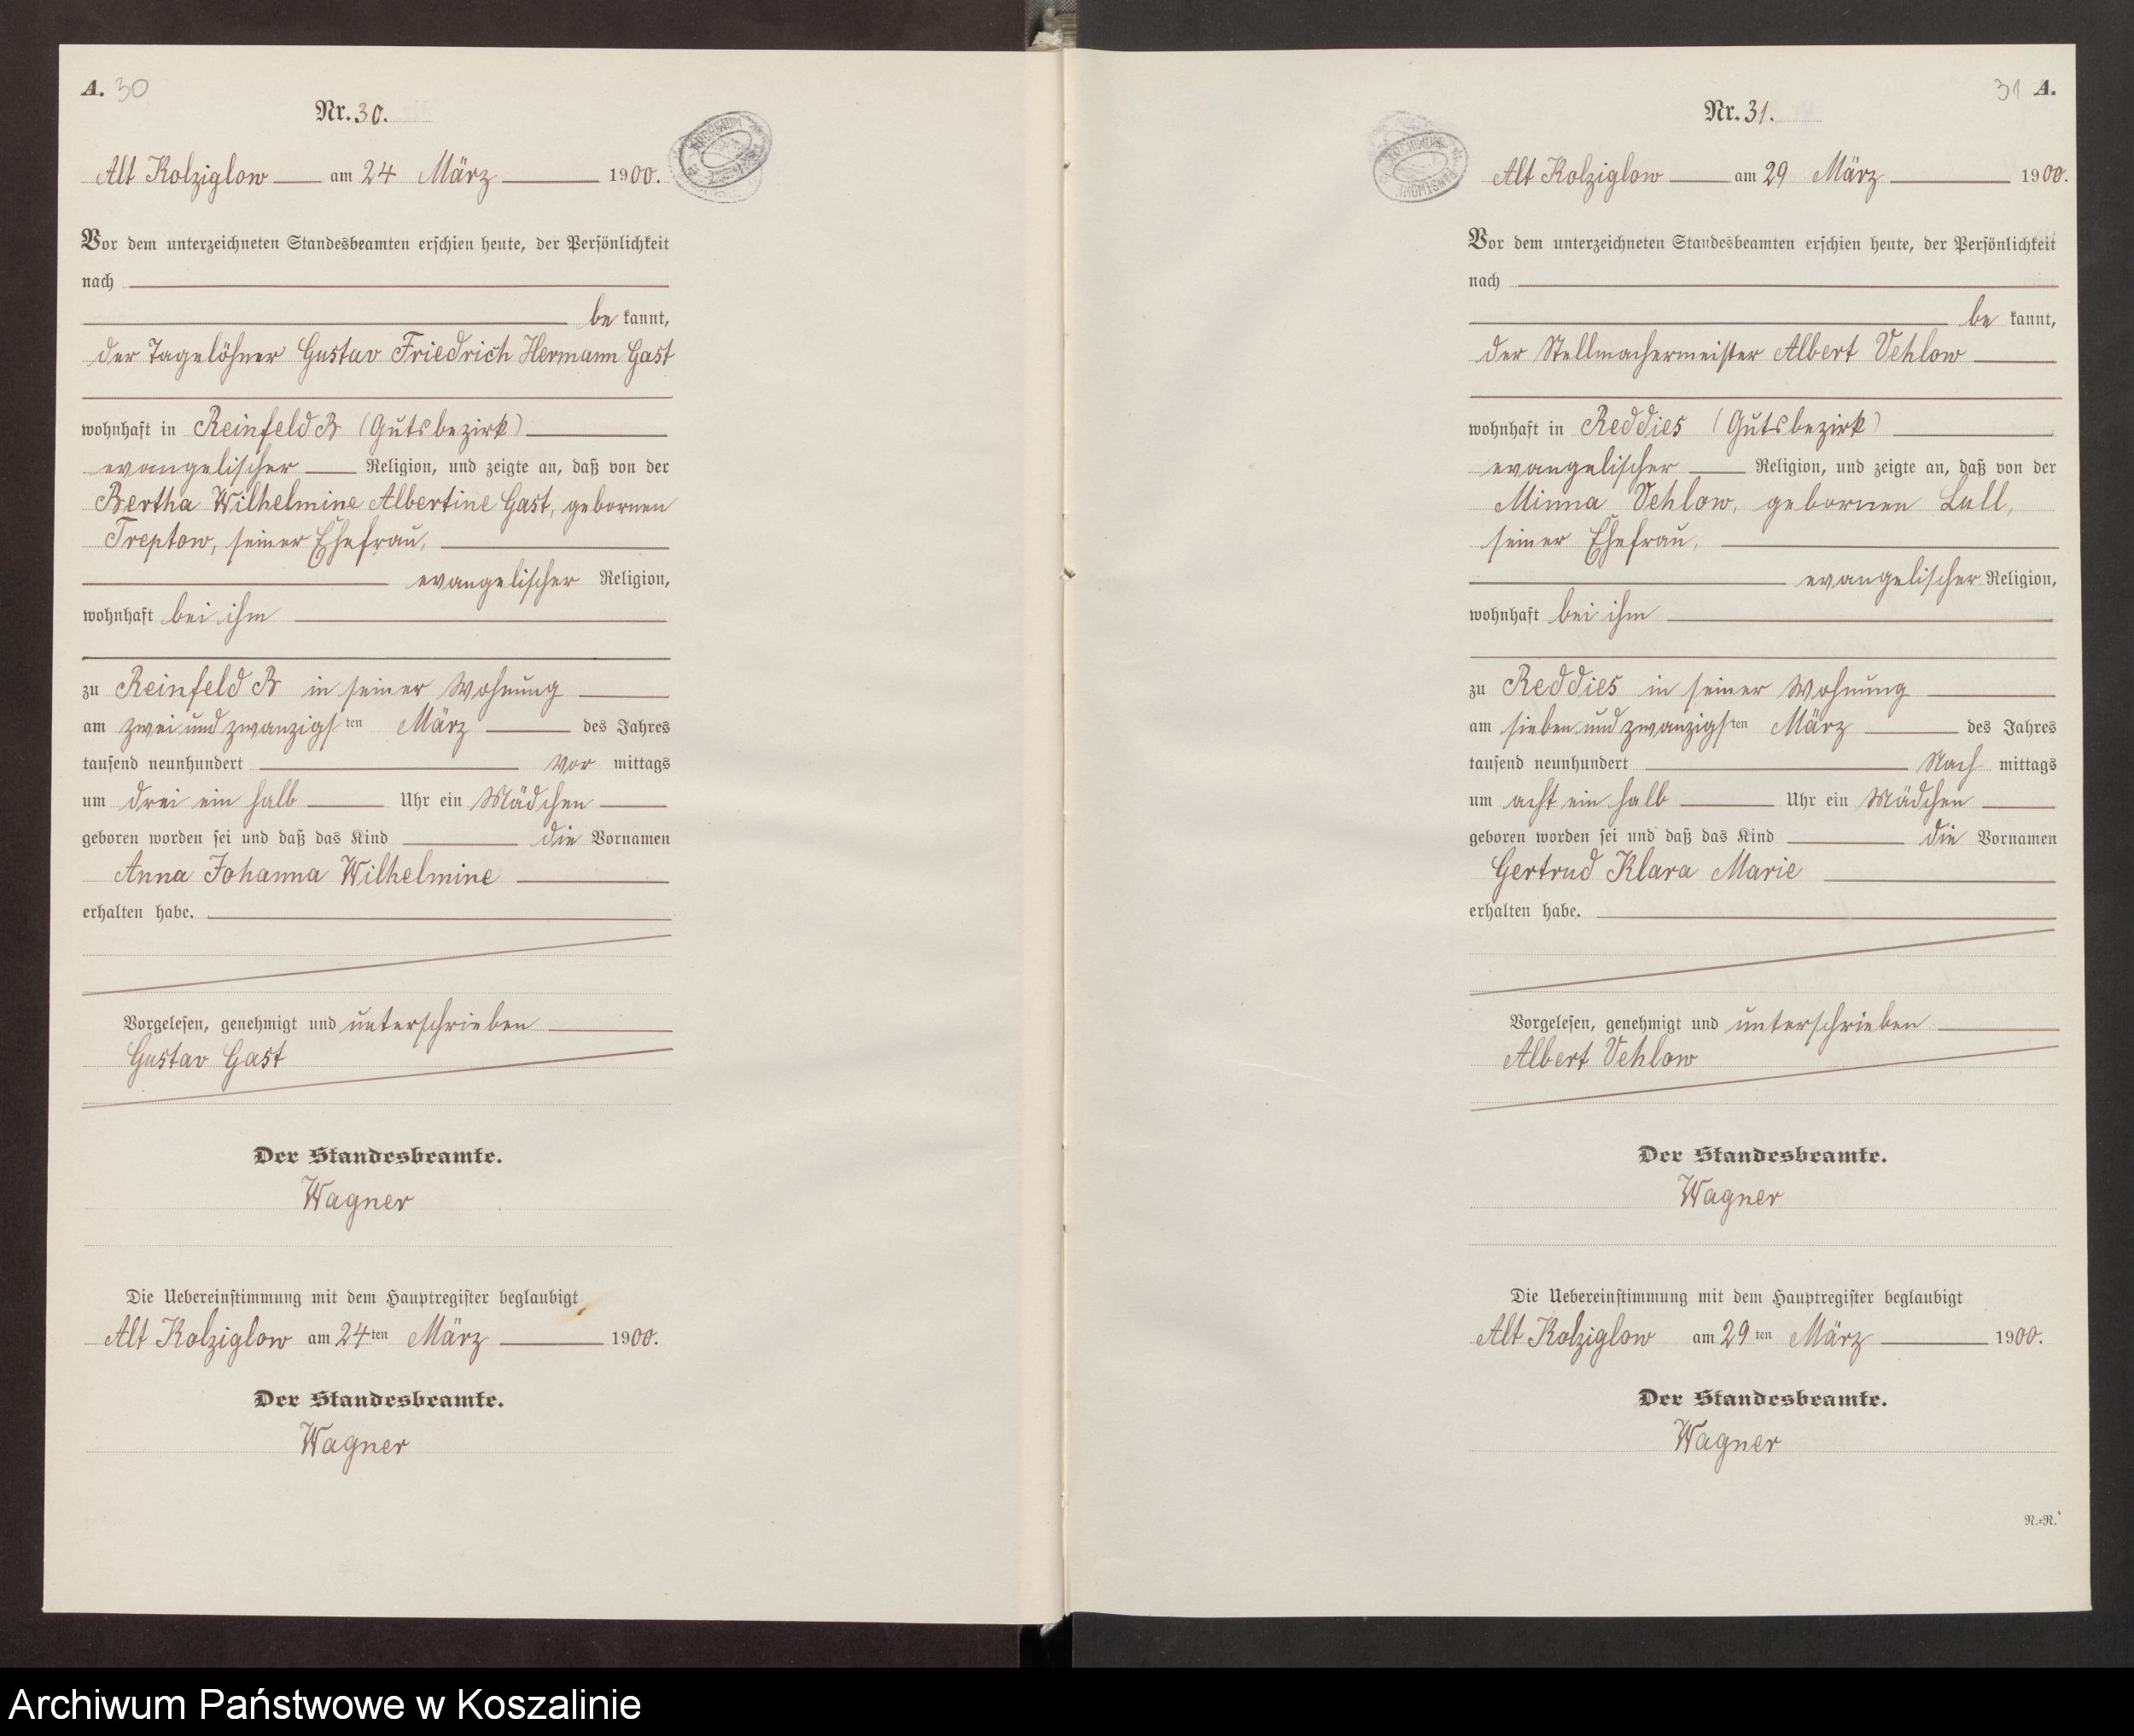 A. 30
Nr. 30.
Alt Kolziglow am 24 März 1900.
Vor dem unterzeichneten Standesbeamten erschien heute, der Persönlichkeit
nach
be kannt,
der Tagelöhner Gustav Friedrich Hermann Gast
wohnhaft in Reinfeld B (Gutsbezirk)
evangelischer Religion, und zeigte an, daß von der
Bertha Wilhelmine Albertine Gast, gebornen
Treptow, seiner Ehefrau,
evangelischer Religion,
wohnhaft bei ihm
zu Reinfeld B in seiner Wohnung
am zwei und zwanzigsten März des Jahres
tausend neunhundert Vor mittags
um drei ein halb Uhr ein Mädchen
geboren worden sei und daß das Kind die Vornamen
Anna Johanna Wilhelmine
erhalten habe.
Vorgelesen, genehmigt und unterschrieben
Gustav Gast
Der Standesbeamte.
Wagner
Die Uebereinstimmung mit dem Hauptregister beglaubigt
Alt Kolziglow am 24ten März 1900.
Der Standesbeamte.
Wagner
31 A.
Nr. 31.
Alt Kolziglow am 29 März 1900.
Vor dem unterzeichneten Standesbeamten erschien heute, der Persönlichkeit
nach
be kannt,
der Stellmachermeister Albert Vehlow
wohnhaft in Reddies (Gutsbezirk)
evangelischer Religion, und zeigte an, daß von der
Minna Vehlow, gebornen Lall,
seiner Ehefrau,
evangelischer Religion,
wohnhaft bei ihm
zu Reddies in seiner Wohnung
am sieben und zwanzigsten März des Jahres
tausend neunhundert Nach mittags
um acht ein halb Uhr ein Mädchen
geboren worden sei und daß das Kind die Vornamen
Gertrud Klara Marie
erhalten habe.
Vorgelesen, genehmigt und unterschrieben
Albert Vehlow
Der Standesbeamte.
Wagner
Die Uebereinstimmung mit dem Hauptregister beglaubigt
Alt Kolziglow am 29ten März 1900.
Der Standesbeamte.
Wagner
N.=R.
Archiwum Państwowe w Koszalinie